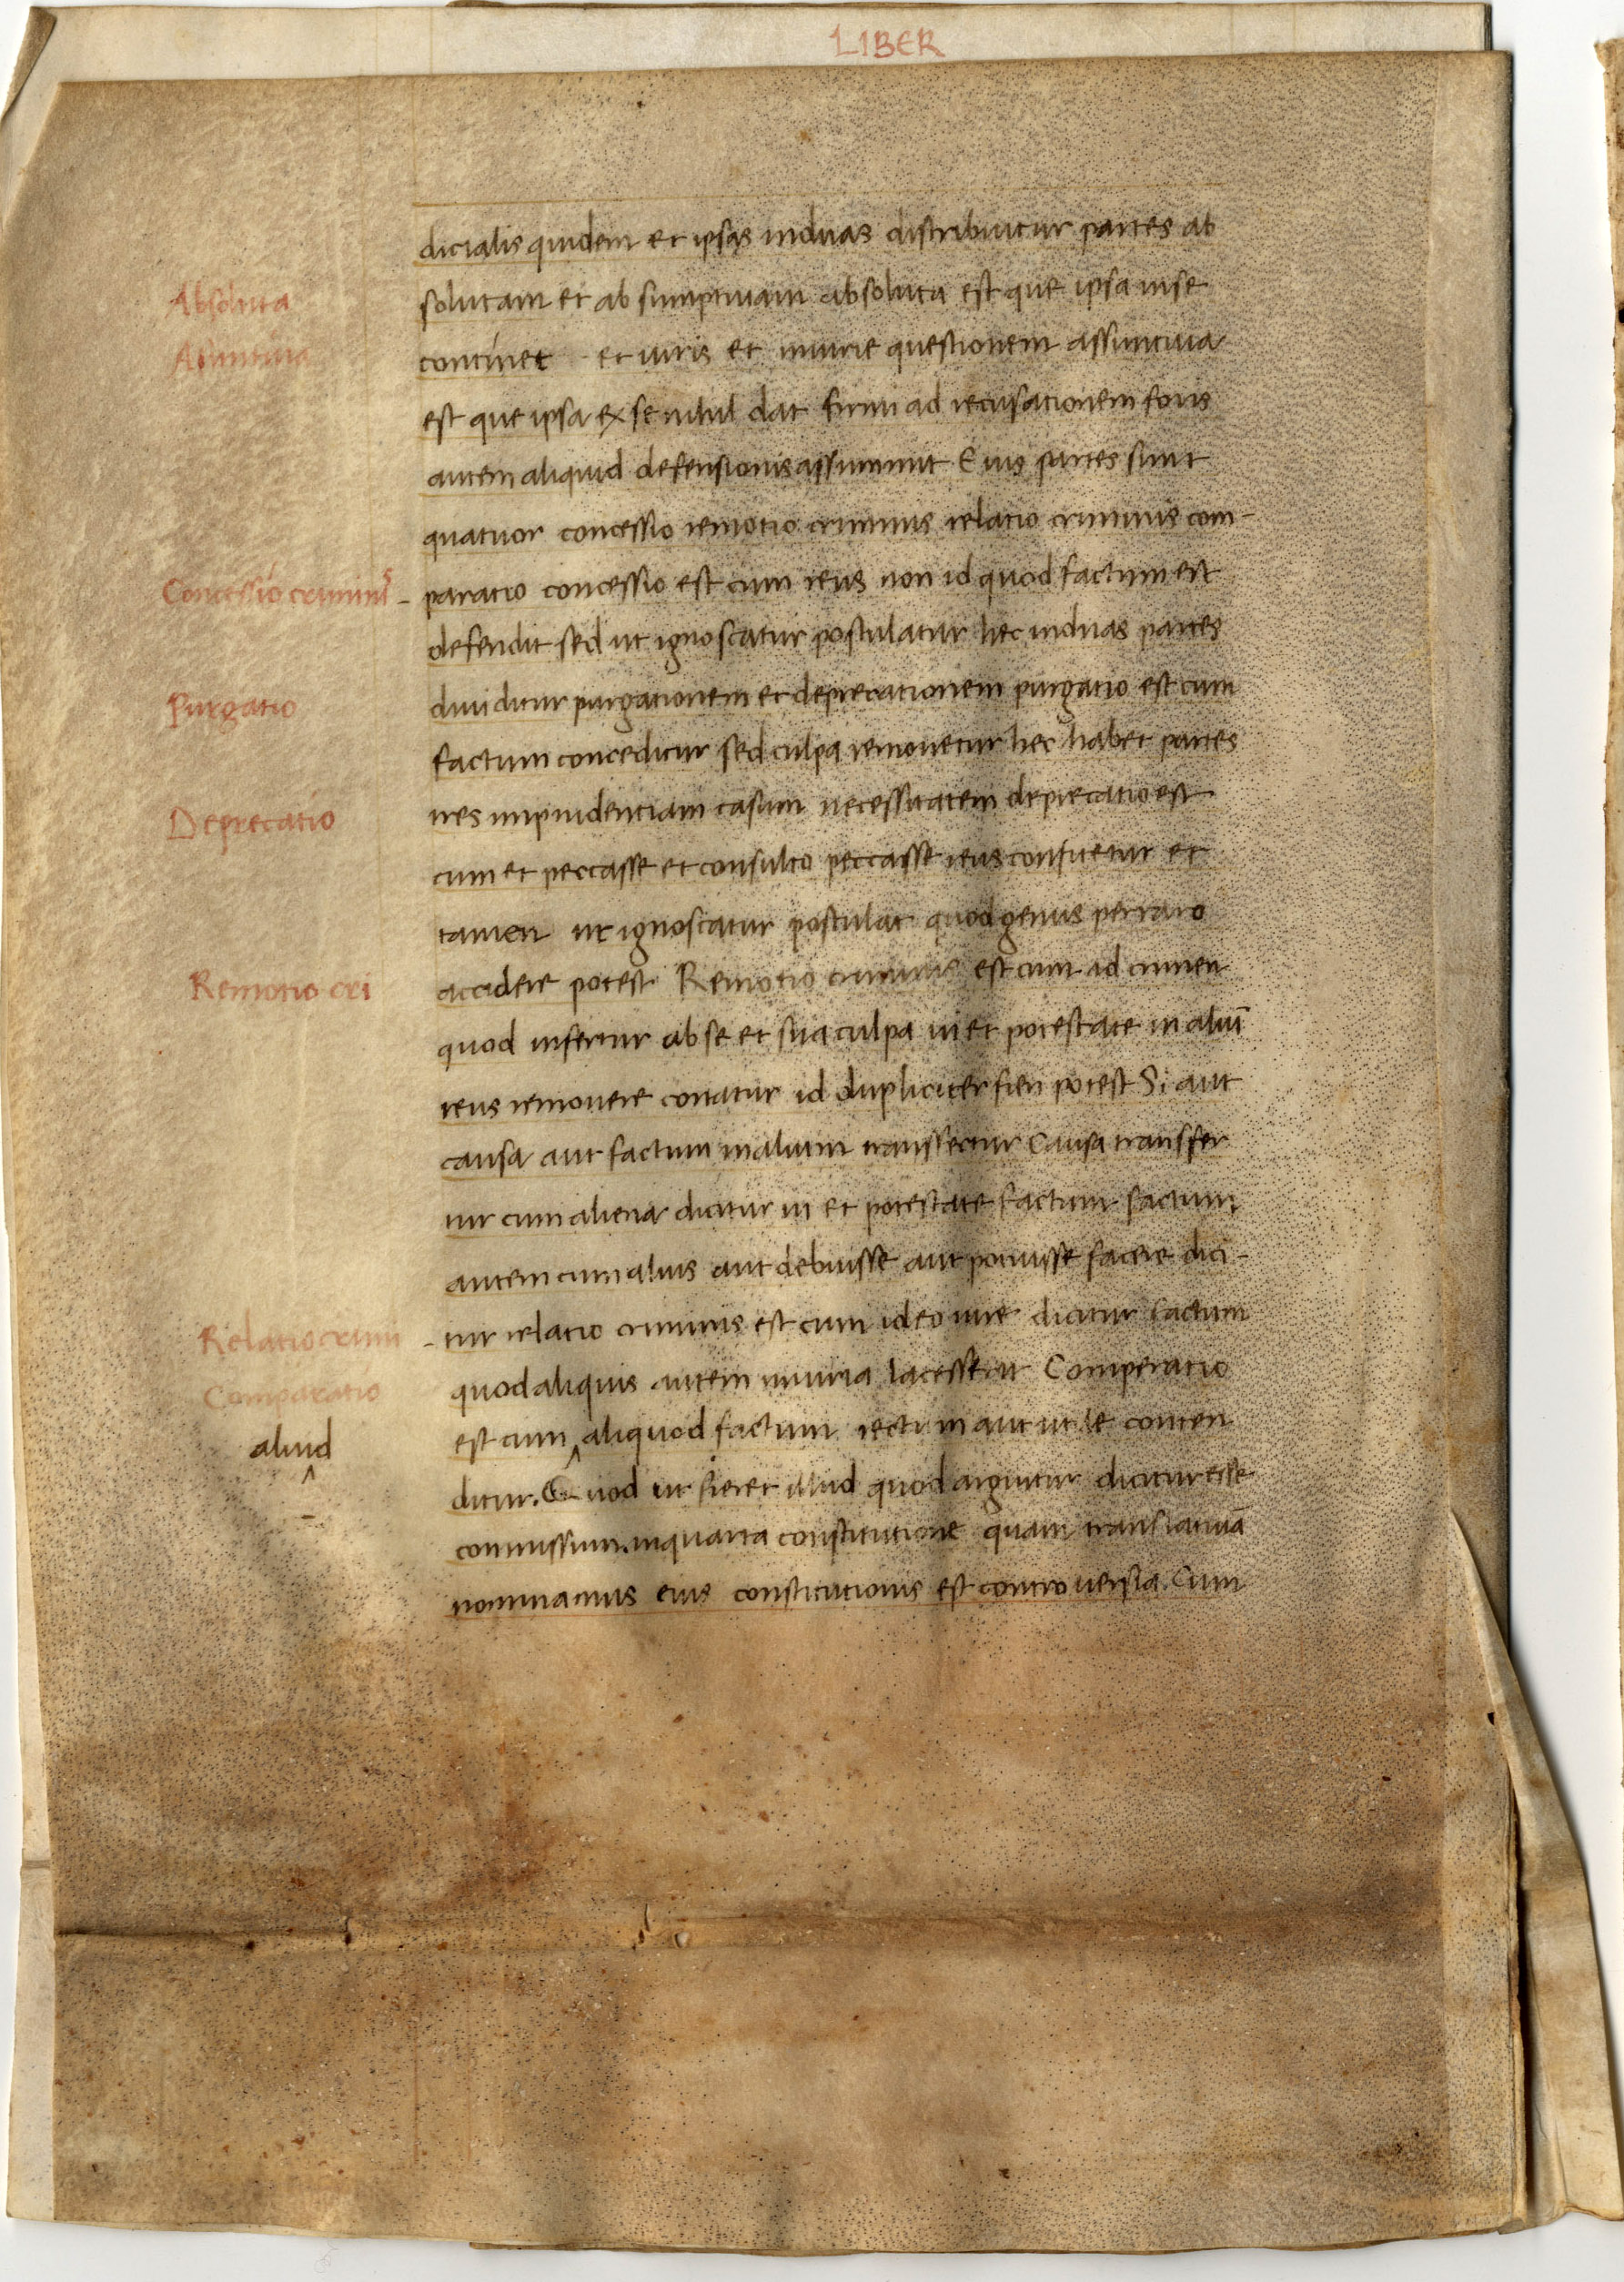 LIBER
dicialis quidem et ipsas induas distribuitur partes ab
Absoluta
solutam et ab sumptiuam absoluta est que ipsa inse
Asuntiua
continet et iuris et iniurie questionem assuntiua
est que ipsa ex se nihil dat firmi ad recusationem foris
autem aliquid defensionis assummit Eius partes sunt
quatuor concessio remotio criminis relatio criminis com-
Concessio criminis
paratio concessio est cum reus non id quod factum est
defendit sed ut ignoscatur postulatur hec induas partes
Purgatio
diuiditur purgationem et deprecationem purgatio est cum
factum conceditur sed culpa remouetur hec habet partes
Deprecatio
tres inprudentiam casum necessitatem deprecatio est
cum et peccasse et consulto peccasse reus confitetur et
tamen ut ignoscatur postulat quod genus perraro
Remotio cri
accidere potest Remotio criminis est cum id crimen
quod infertur ab se et sua culpa ui et potestate in aliū
reus remouere conatur id dupliciter fieri potest Si aut
causa aut factum inalium transfertur Causa transfer
tur cum aliena dicitur ui et potestate factum factum
autem cum alius aut debuisse aut potuisse facere dici-
Relatio crim
tur relatio criminis est cum ideo iure dicitur factum
Comparatio
quod aliquis autem iniuria lacesserit Comperatio
aliud
est cum aliquod factum rectum aut utile conten
ditur. Quod ut fieret illud quod arguitur dicitur esse
commissum. inquarta constitutione quam translatiuā
nominamus eius constitutionis est controuersia. Cum